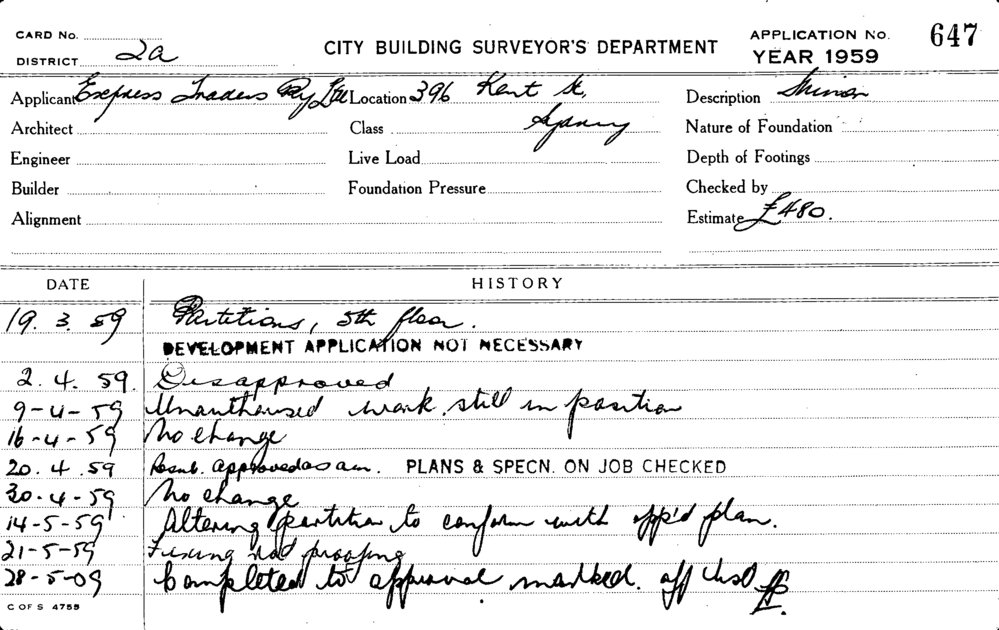 CARD No.
DISTRICT 2a
CITY BUILDING SURVEYOR'S DEPARTMENT
APPLICATION No. 647
YEAR 1959
Applicant Express Traders Pty Ltd Location 396 Kent St, Description Minor
Architect Class Sydney Nature of Foundation
Engineer Live Load Depth of Footings
Builder Foundation Pressure Checked by
Alignment Estimate £480.
DATE HISTORY
19. 3. 59 Partitions, 5th floor.
DEVELOPMENT APPLICATION NOT NECESSARY
2. 4. 59. Disapproved
9-4-59 Unauthorised work still in position
16-4-59 No change
20. 4. 59 Resub. approved as am. PLANS & SPECN. ON JOB CHECKED
30-4-59 No change
14-5-59 Altering partition to conform with app'd plan.
21-5-59 Fixing proofing
28-5-09 Completed to approval marked off
C OF S 4755